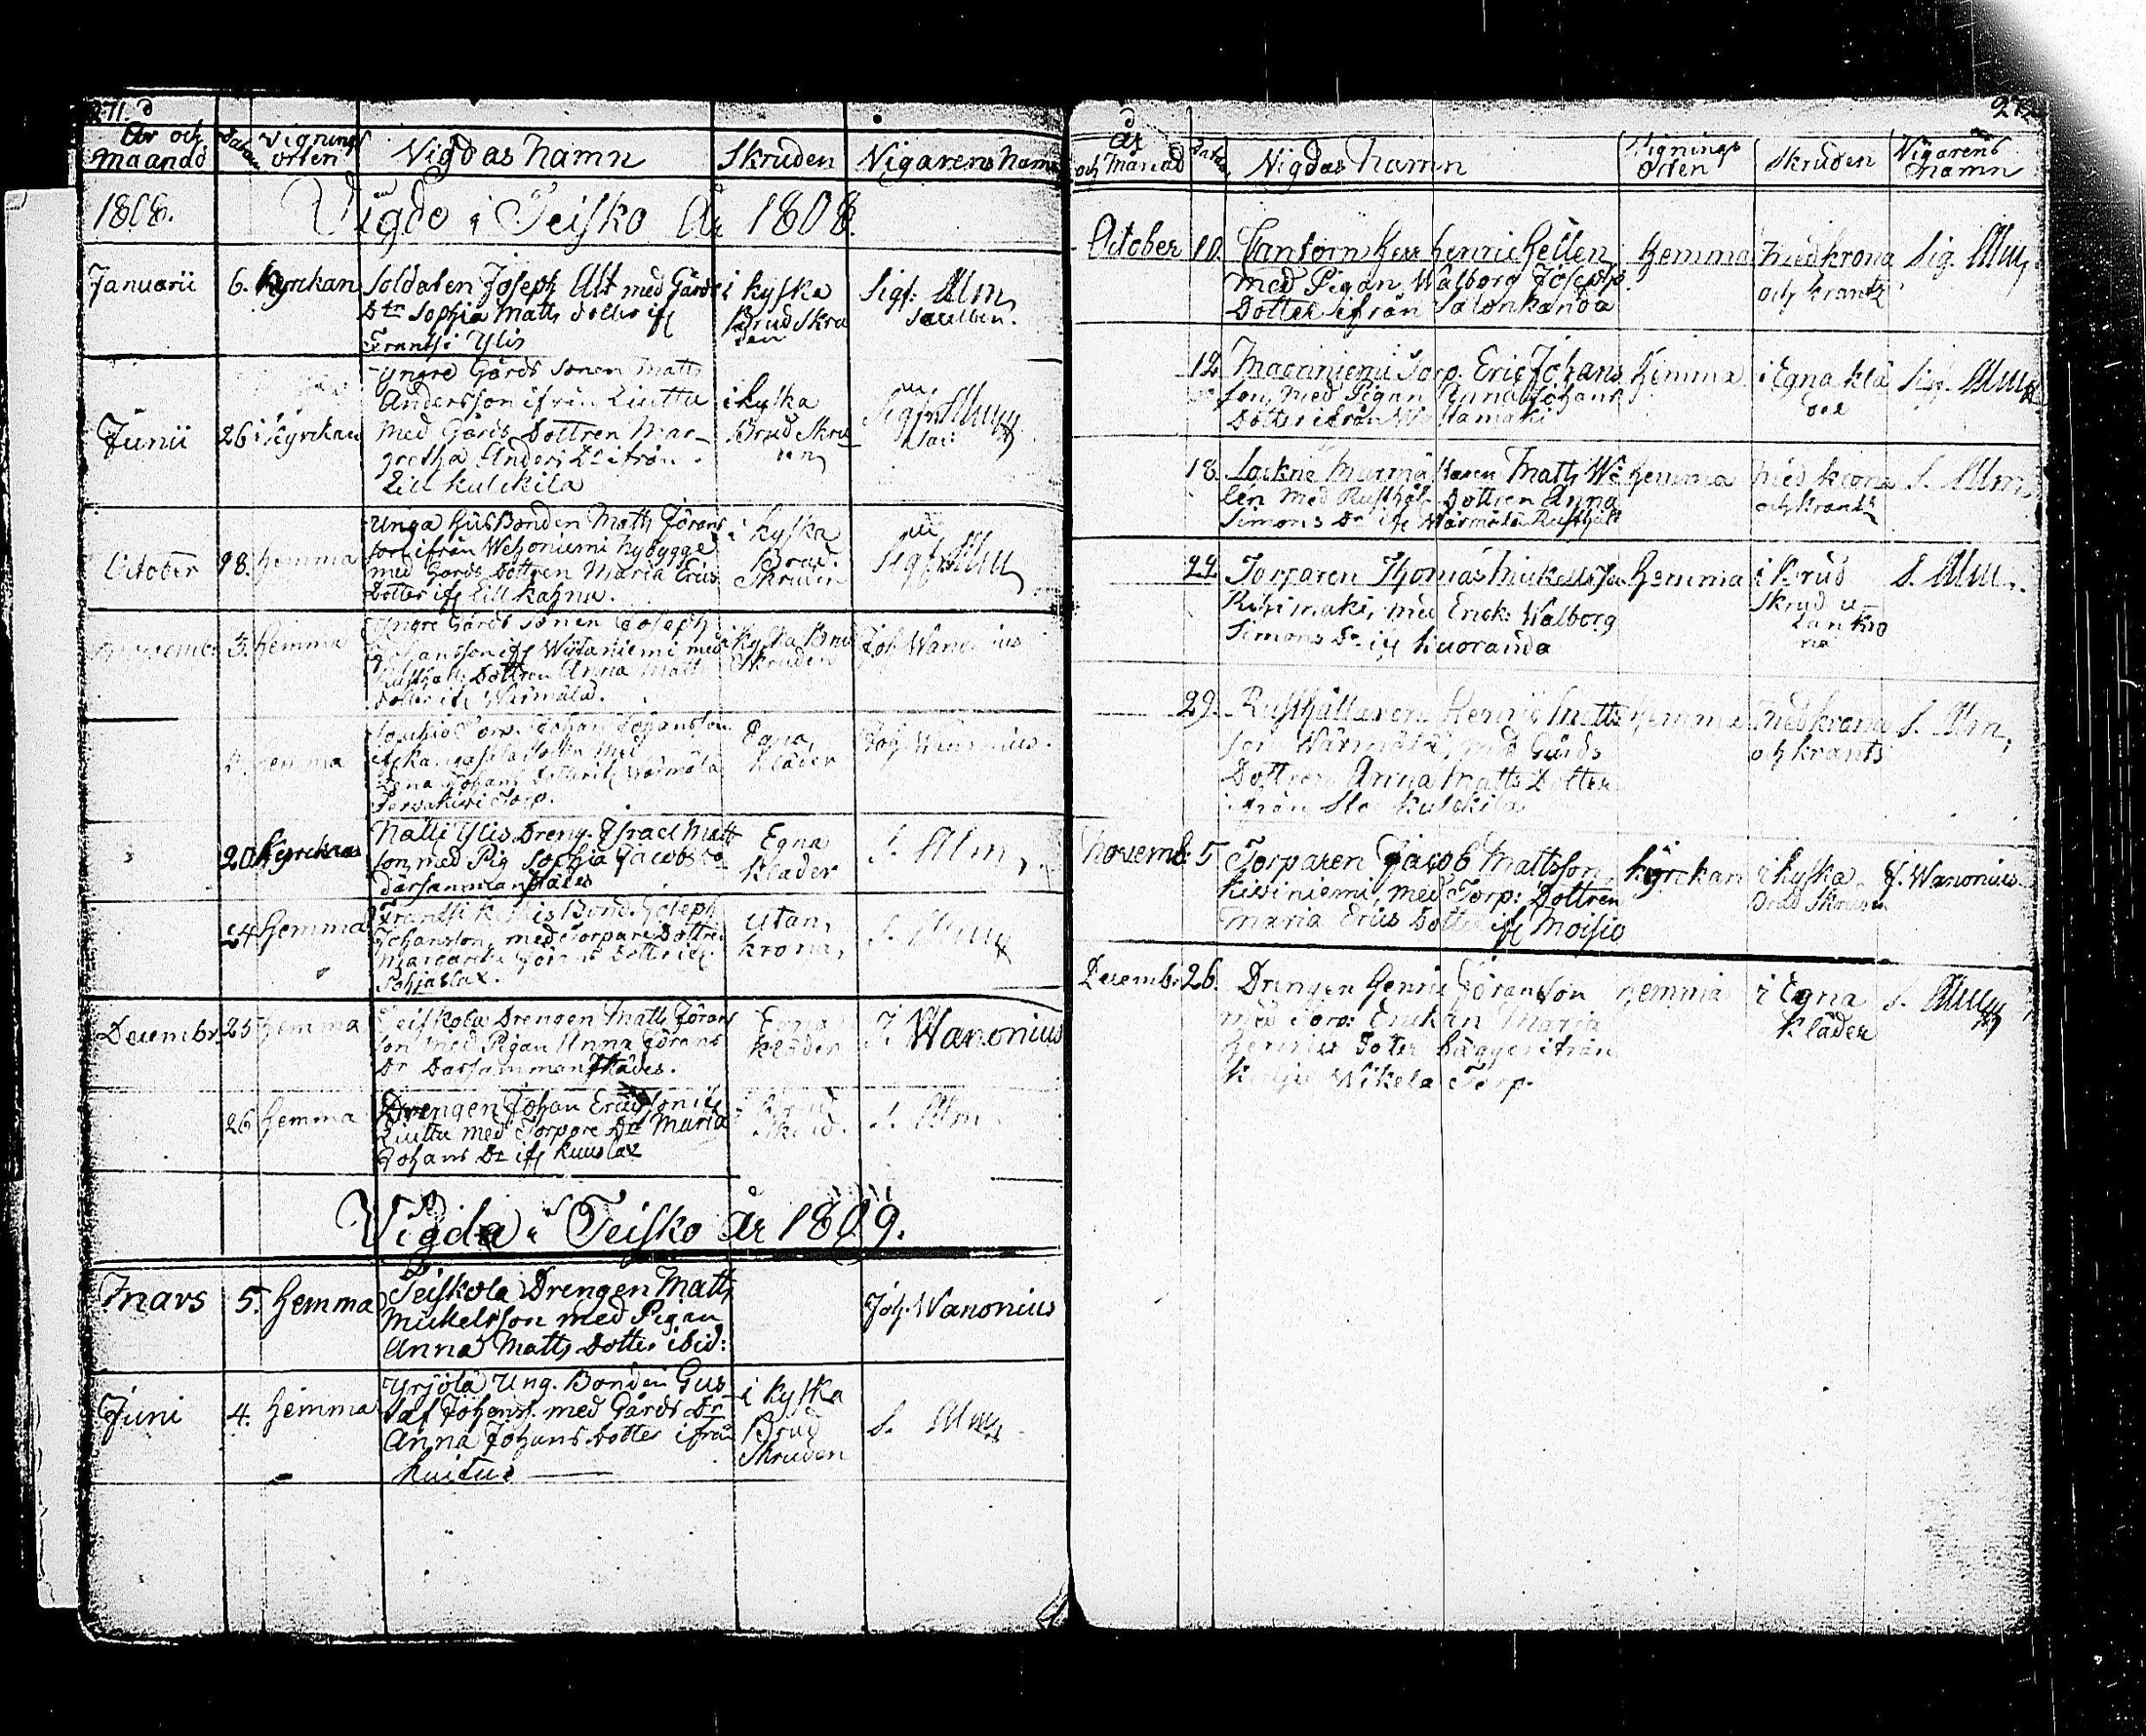 271.
År och Maanad
Datum
Vignings orten
Vigdas Namn
Skruden
Vigarens Namn
1808.
Vigde i Teisko År 1808.
Januarii 6. Kyrckan
Soldaten Joseph Alt med Gårds
Dtr Sophia Matts dotter if
Frantsi Ylis
i kyska
Brud Skru
den
Sigf: Alm
Sacellan.
Junii 26 i Kyrckan
Yngre Gårds Sonen Matts
Andersson ifrån Liuttu
med Gårds Dottren Mar-
gretha Anders Dr ifrån
Lill Kulckila
i kyska
Brud Skru
den
Sigfr Alm
Sac:
October 98. hemma
Unga Husbonden Matts Jörans
son ifrån Wehoniemi Nybygge
med Gårds Dottren Maria Erics
Dotter if Lill Kahna.
i kyska
Brud
Skruden
Sigfr Alm
Novemb: 3. hemma
Yngre Gårds Sonen Joseph
Johansson if Wiitaniemi med
Rusthåll: Dottren Anna Matts
dotter if Wärmälä.
i kyska Brud
Skruden
Joh Wanonius
hemma
Torp. Johan Johansson
med
Lena Johans Dotter if Wärmälä
Torp.
Egna
Kläder
Joh Wanonius.
20 Kyrckan
Natti Ylis Dreng. Israel Matts
son, med Pig Sophia Jacobs Do
därsammanstädes
Egna
Kläder
S. Alm
24 hemma
Frantsi Bond. Joseph
Johansson, med Torpare Dottren
Margareta Jörans Dotter if
Pohjaslax.
Utan
krona,
S. Alm
Decembr 25 hemma
Teiskola Drengen Matts Jörans
son med Pigan Anna Jörans
Dr Darsammanstädes.
Egna
Kläder
J. Wanonius
26 hemma
Drengen Johan Ericsson if
Liuttu med Torpare Dtr Maria
Johans Dr if Kuuslax
Brud
Skrud.
S. Alm
Vigda i Teisko År 1809.
Mars 5. hemma
Teiskola Drengen Matts
Mickelsson med Pigan
Anna Matts Dotter ibid:
Joh. Wanonius
Juni 4. hemma
Yrjölä Ung. Bonden Gus
taf Johanss. med Gårds Dr
Anna Johans Dotter ifrån
Kuitus
i kyska
Brud
Skruden
S. Alm
272
År och Månad
Datum
Vigdas Namn
Vignings Orten
Skruden
Vigarens Namn
October 10. Cantorn Herr Henric Hellen
med Pigan Walborg Joseps
Dotter ifrån Salonkanda
hemma
med krona
och krantz
Sig. Alm
12 Macciniemi Torp. Eric Johans
son, med Pigan Anna Johans
Dotter ifrån
hemma
i Egna klä
der
Sigf. Alm
18. Matts We
len med Rusthål: Dottren Anna
Simons Dr if Wärmälä Rusthåll
hemma
med krona
och krants
S. Alm
22 Torparen Thomas Mickelsson
Rihimäki, med Enck: Walborg
Simons Dr if Kuoranda
hemma
i Brud
Skrud u-
tan kro
na
S. Alm.
29. Rusthållaren Henric Matts
son Wärmälä, med Gårds
Dottren Anna Matts Dotter
ifrån Stor Kulckila
hemma
med krona
och krants
S. Alm,
Novemb: 5 Torparen Jacob Mattsson
Kiviniemi, med Torp: Dottren
Maria Erics Dotter if Moisio
Kyrckan
i kyska
Brud Skruden
J. Wanonius
Decembr. 26. Drengen Henric Göransson
med Torp: Enckan Maria
Henrics Doter bägge ifrån
Wikela Torp.
hemma
i Egna
Kläder
S. Alm